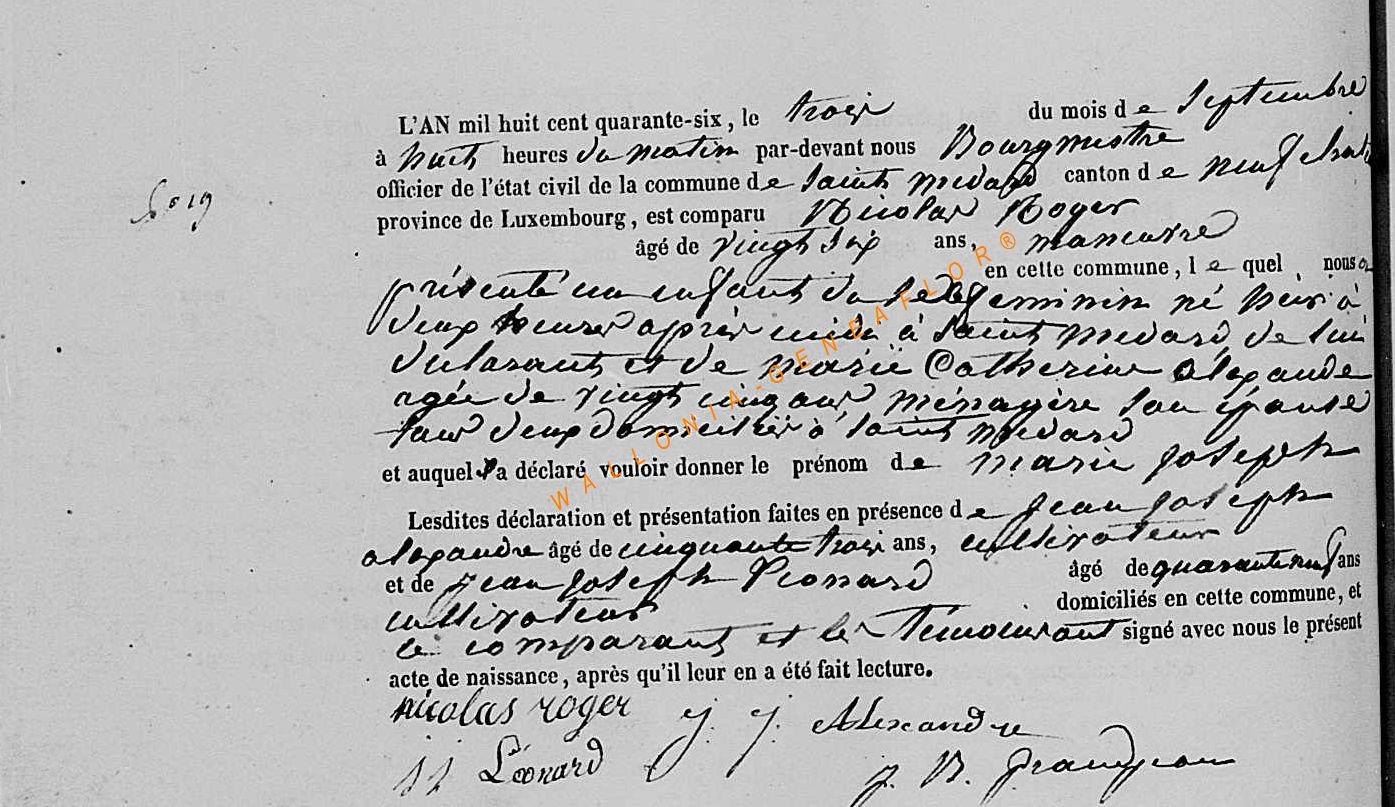 L'AN mil huit cent quarante-six, le trois du mois de Septembre
à huit heures du matin par-devant nous Bourgmestre
officier de l'état civil de la commune de saint medard canton de neufchat
province de Luxembourg, est comparu Nicolas Roger
No 19
âgé de vingt six ans, maneuvre
en cette commune, lequel, nous a
présenté un enfant du sexe feminin né hier à
deux heures après midi à saint medard, de lui
déclarant et de marie Catherine alexandre
agée de vingt cinq ans ménagère son épouse
tous deux domiciliés à saint medard
et auquel il a déclaré vouloir donner le prénom de marie joseph
Lesdites déclaration et présentation faites en présence de jean joseph
alexandre âgé de cinquante trois ans, cultivateur
et de jean joseph Léonard âgé de quarante neuf ans
cultivateur domiciliés en cette commune, et
le comparant et les témoins ont signé avec nous le présent
acte de naissance, après qu'il leur en a été fait lecture.
nicolas roger J. J. Alexandre
JJ Léonard J. B. Grandjean
WALLONIA-GENEAFLOR®